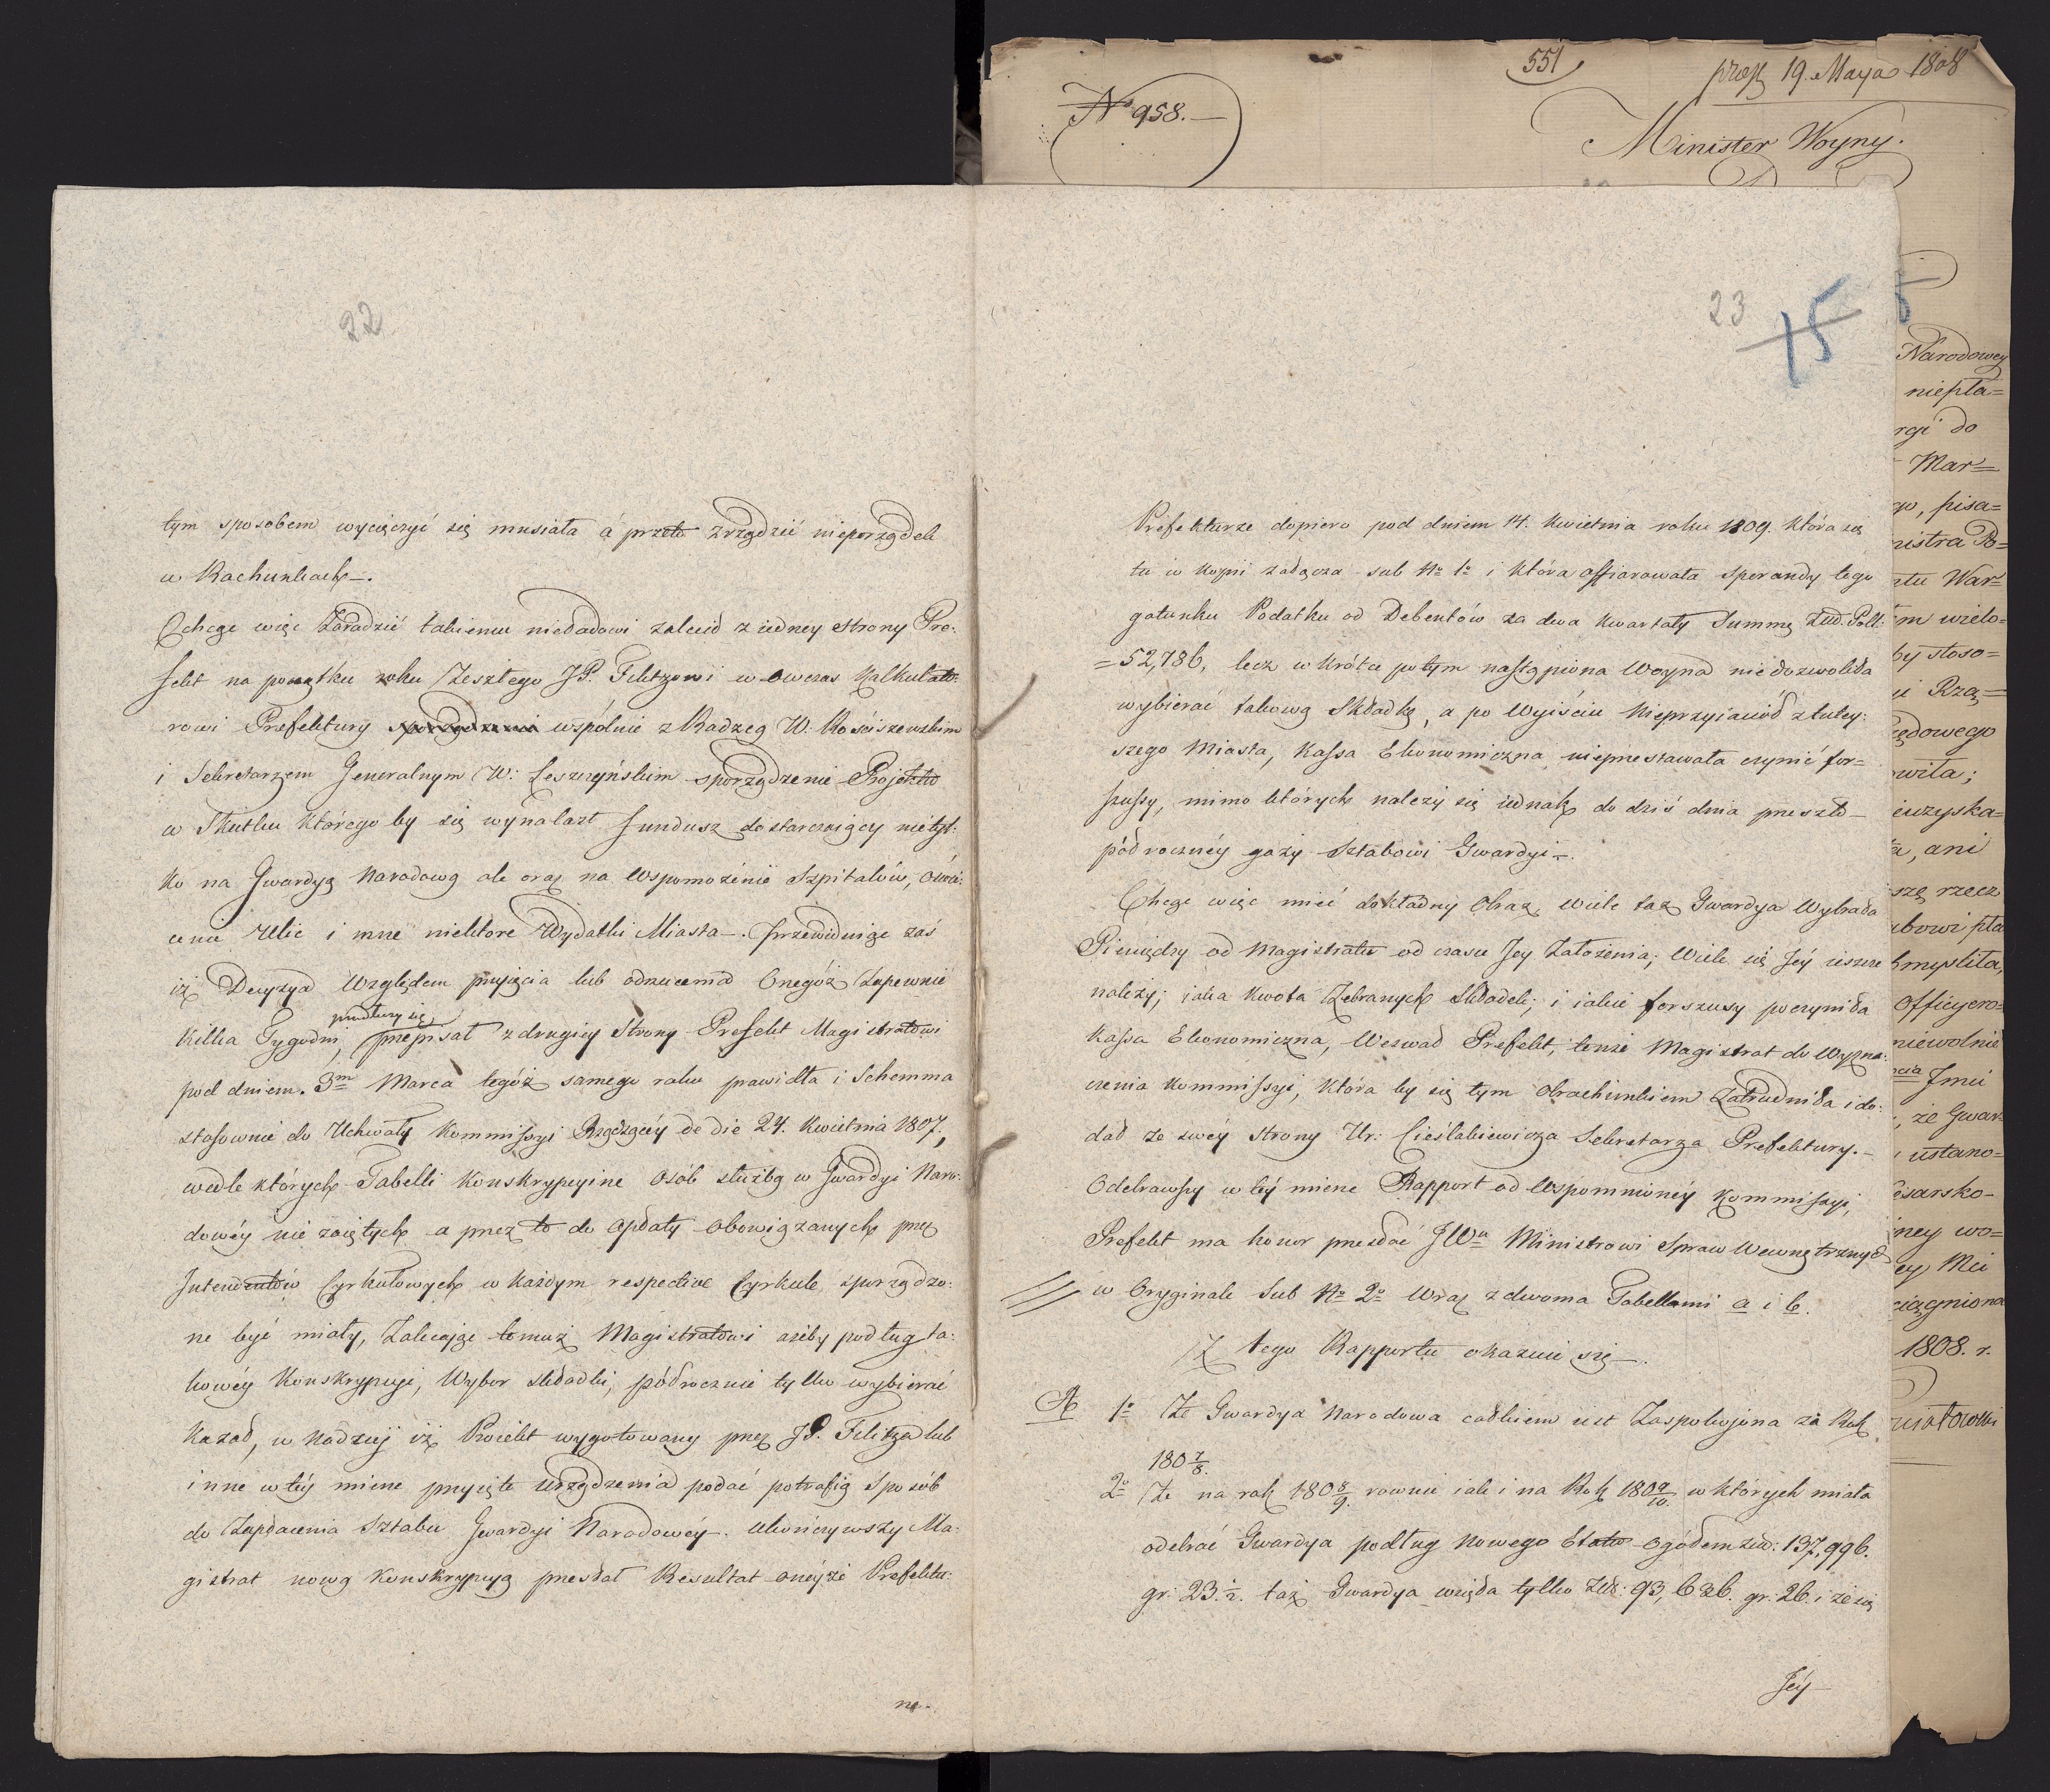 551
prez 19. Maya 1808
No 958.—
Minister Woyny.
22
tym sposobem wycięczyć się musiała á przeto zrządzić nieporządek
w Rachunkach—.
Chcąc więc zaradzić takiemu nieładowi zalecił z iedney strony Pre:
fekt na początku roku zeszłego JP. Filitzowi w owczas Kalkulato:
rowi Prefektury sporządzenie wspólnie z Radzcą W. Rościszewskim
i Sekretarzem Generalnym W: Leszczyńskim sporządzenie Projektu
w Skutku którego by się wynalazł fundusz dostarczaiący nietyl:
ko na Gwardyą Narodową ale oraz na Wspomożenie Szpitalów, óświé:
cenie Ulic i inne niektóre Wydatki Miasta—. Przewiduiąc zaś
iż Decyzya Względem przyięcia lub odrzucenia Onegóż Zapewnie
przedłuży się
Kilka Tygodni, przepisał z drugiey Strony Prefekt Magistratowi
pod dniem. 3m Marca tegóż samego roku prawidła i Schemma
stosownie do Uchwały Kommissyi Rządzącéy de die 24. Kwietnia 1807.,
wedle których Tabelli Konskrypcyine Osób służbą w Gwardyi Naro:
dowéy nie zaiętych a przez to do Opłaty obowiązanych przez
Intendentów Cyrkułowych w każdym respective Cyrkule sporządzo:
ne być miały, Zalecaiąc temuż Magistratowi ażeby podług ta:
kowéy Konskrypcyi, Wybor składki, półrocznie tylko wybierać
Kazał, w nadziéj iż Proiekt wygotowany przez JP. Filitza lub
inne w téy mierze przyięte urządzenia podać potrafią Sposób
do Zapłacenia Sztabu Gwardyi Narodowéy. Ukończywszy Ma:
gistrat nową Konskrypcyą przesłał Resultat onéyże Prefektu:
re.
23
15
Prefekturze dopiero pod dniem 14. Kwietnia roku 1809. która się
tu w Kopii załącza sub No 1o i która offiarowała sperandy tego
gatunku Podatku od Debentów za dwa kwartały Summę Złłd. Poll:
=52,786, lecz w krótce potym nastąpiona Woyna nie dozwoliła
wybierać takową Składkę, a po Wyiściu Nieprzyiaciół z tutey:
szego Miasta, Kassa Ekonomiczna nieprzestawała czynić for=
szussy, mimo których należy się iednak do dziś dnia przeszło—
półrocznéy gaży Sztabowi Gwardyi—.
Chcąc więc mieć dokładny Obraz, wiele taż Gwardya Wybrała
Pieniędzy od Magistratu od czasu Jey Założenia; Wiele się Jéy ieszcze
należy; iaka kwota Zebranych Składek; i iakie forszusy poczyniła
Kassa Ekonomiczna, Wezwał Prefekt, tenże Magistrat do Wyzna:
czenia Kommissyi, która by się tym obrachunkiem Zatrudniła i do:
dał ze swéy Strony Ur: Cieślakiewicza Sekretarza Prefektury.—
Odebrawszy w téy mierze Rapport od Wspomnionéy Kommissyi,
Prefekt ma honor przesłać JWu Ministrowi Spraw Wewnętrznych
w Oryginale Sub No 2o Wraz z dwoma Tabellami a i b.
Z tego Rapportu okazuie się—.
A 1o Że Gwardya Narodowa całkiem iest Zaspokojona za Rok
180 7/8.
2o Że na rok 180 8/9. rownie iak i na Rok 180 9/10. w których miała
odebrać Gwardya podług Nowego Etatu Ogółem złłd: 137,996.
gr: 23. ½. taż Gwardya wzięła tylko złłd: 93, 626. gr: 26. i że się
Jéy
5
Narodowey
niepła=
rgi do
Mar=
go, pisa=
nistra Po=
tu War=
m wielo=
by stoso=
i Rzą=
ędowego
owiła;
euzyska=
a, ani
szę rzecz
bowi pła
bmyśliła,
Officyero=
niewolnie
Jmci
, że Gwar=
ustano=
esarsko=
ney wo=
ey Mci
ciągniona
1808. r.
niatowski